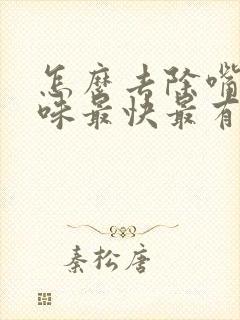 怎麼去除嘴
味最快最有
秦松唐